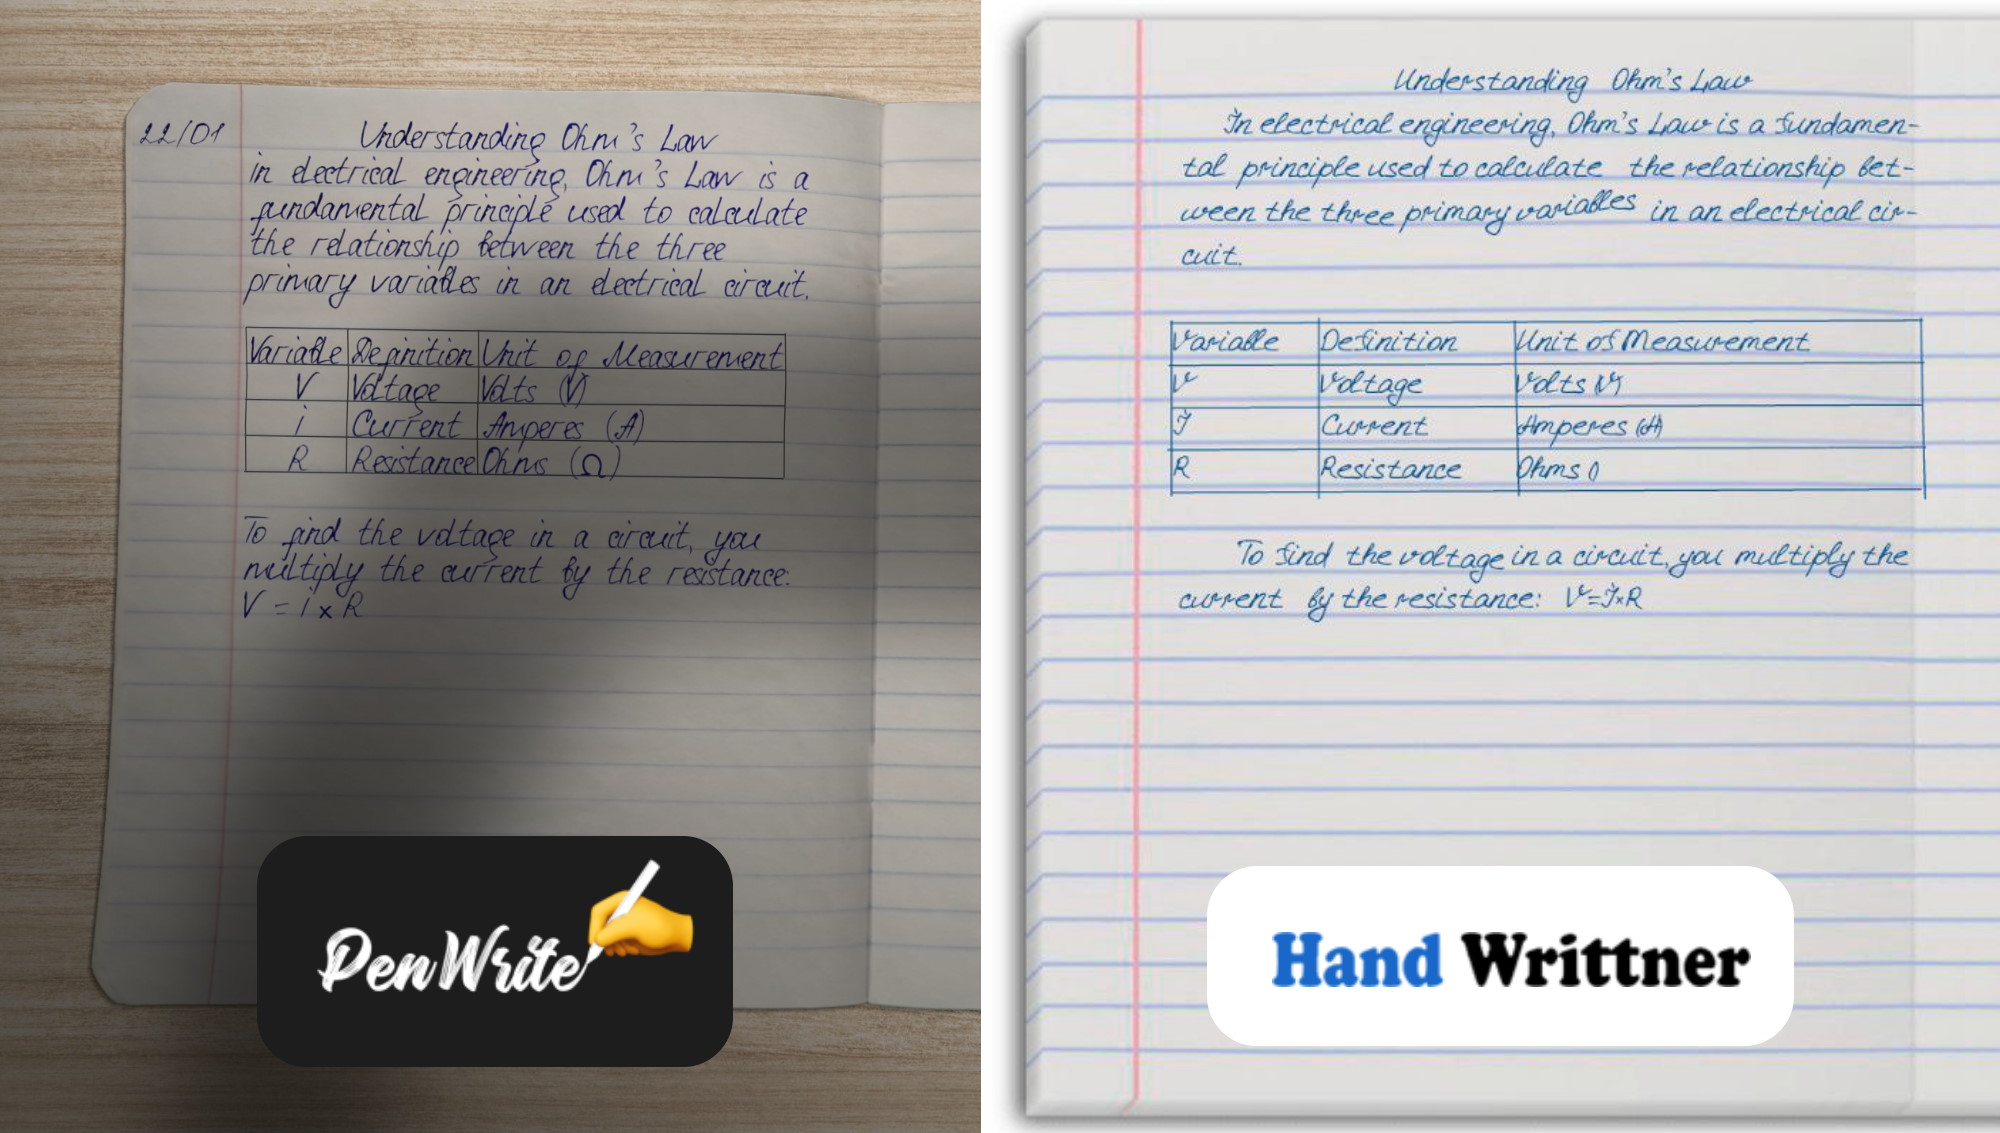 22/01
Understanding Ohm's Law
in electrical engineering, Ohm's Law is a
fundamental principle used to calculate
the relationship between the three
primary variables in an electrical circuit.
Variable Definition Unit of Measurement
V Voltage Volts (V)
i Current Amperes (A)
R Resistance Ohms (Ω)
To find the voltage in a circuit, you
multiply the current by the resistance:
V = i × R
PenWrite
Understanding Ohm's Law
In electrical engineering, Ohm's Law is a fundamen-
tal principle used to calculate the relationship bet-
ween the three primary variables in an electrical cir-
cuit.
Variable Definition Unit of Measurement
V Voltage Volts (V)
I Current Amperes (A)
R Resistance Ohms ()
To find the voltage in a circuit, you multiply the
current by the resistance: V=I×R
Hand Writtner